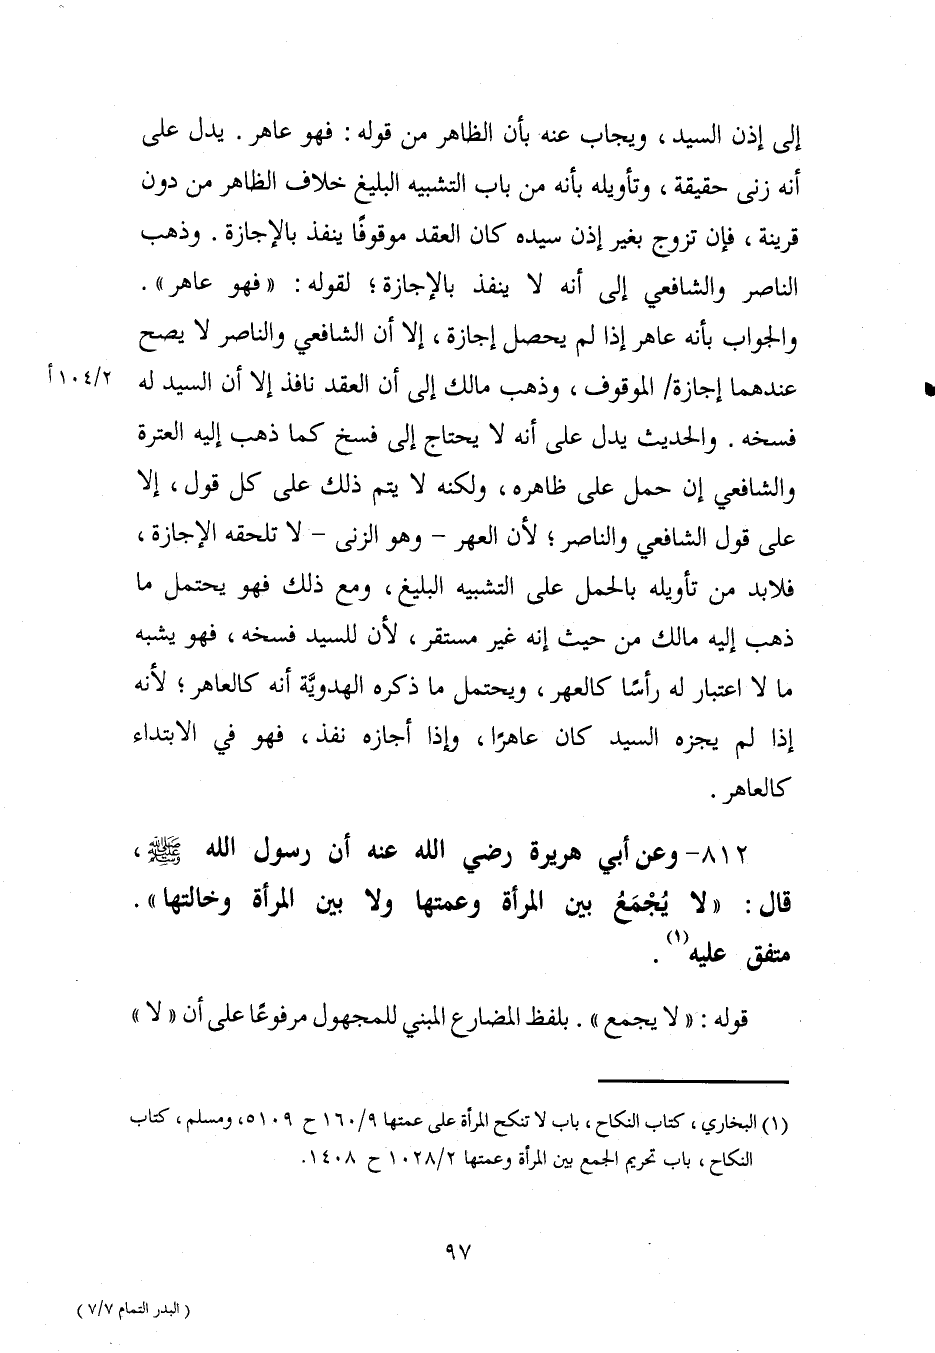 إلى إذن السيد ، ويجاب عنه بأن الظاهر من قوله : فهو عاهر . يدل على
أنه زنى حقيقة ، وتأويله بأنه من باب التشبيه البليغ خلاف الظاهر من دون
قرينة ، فإن تزوج بغير إذن سيده كان العقد موقوفًا ينفذ بالإجازة . وذهب
الناصر والشافعي إلى أنه لا ينفذ بالإجازة ؛ لقوله : « فهو عاهر » .
والجواب بأنه عاهر إذا لم يحصل إجازة ، إلا أن الشافعي والناصر لا يصح
عندهما إجازة/ الموقوف ، وذهب مالك إلى أن العقد نافذ إلا أن السيد له ١٠٤/٢أ
فسخه . والحديث يدل على أنه لا يحتاج إلى فسخ كما ذهب إليه العترة
والشافعي إن حمل على ظاهره ، ولكنه لا يتم ذلك على كل قول ، إلا
على قول الشافعي والناصر ؛ لأن العهر - وهو الزنى - لا تلحقه الإجازة ،
فلابد من تأويله بالحمل على التشبيه البليغ ، ومع ذلك فهو يحتمل ما
ذهب إليه مالك من حيث إنه غير مستقر ، لأن للسيد فسخه ، فهو يشبه
ما لا اعتبار له رأسًا كالعهر ، ويحتمل ما ذكره الهدويَّة أنه كالعاهر ؛ لأنه
إذا لم يجزه السيد كان عاهرًا ، وإذا أجازه نفذ ، فهو في الابتداء
كالعاهر .
٨١٢- وعن أبي هريرة رضي الله عنه أن رسول الله ﷺ ،
قال : « لا يُجْمَعُ بين المرأة وعمتها ولا بين المرأة وخالتها » .
متفق عليه(١) .
قوله : « لا يجمع » . بلفظ المضارع المبني للمجهول مرفوعًا على أن « لا »
(١) البخاري ، كتاب النكاح ، باب لا تنكح المرأة على عمتها ١٦٠/٩ ح ٥١٠٩، ومسلم ، كتاب
النكاح ، باب تحريم الجمع بين المرأة وعمتها ١٠٢٨/٢ ح ١٤٠٨.
٩٧
( البدر التمام ٧/٧ )